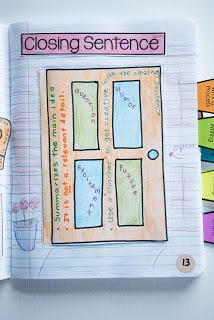 Closing Sentence
• Summarizes the main idea
It is not a relevant detail.
Question
Humor
Excitement
Future
• Use a clincher to get creative
with the closing
sentence
open
13
Process